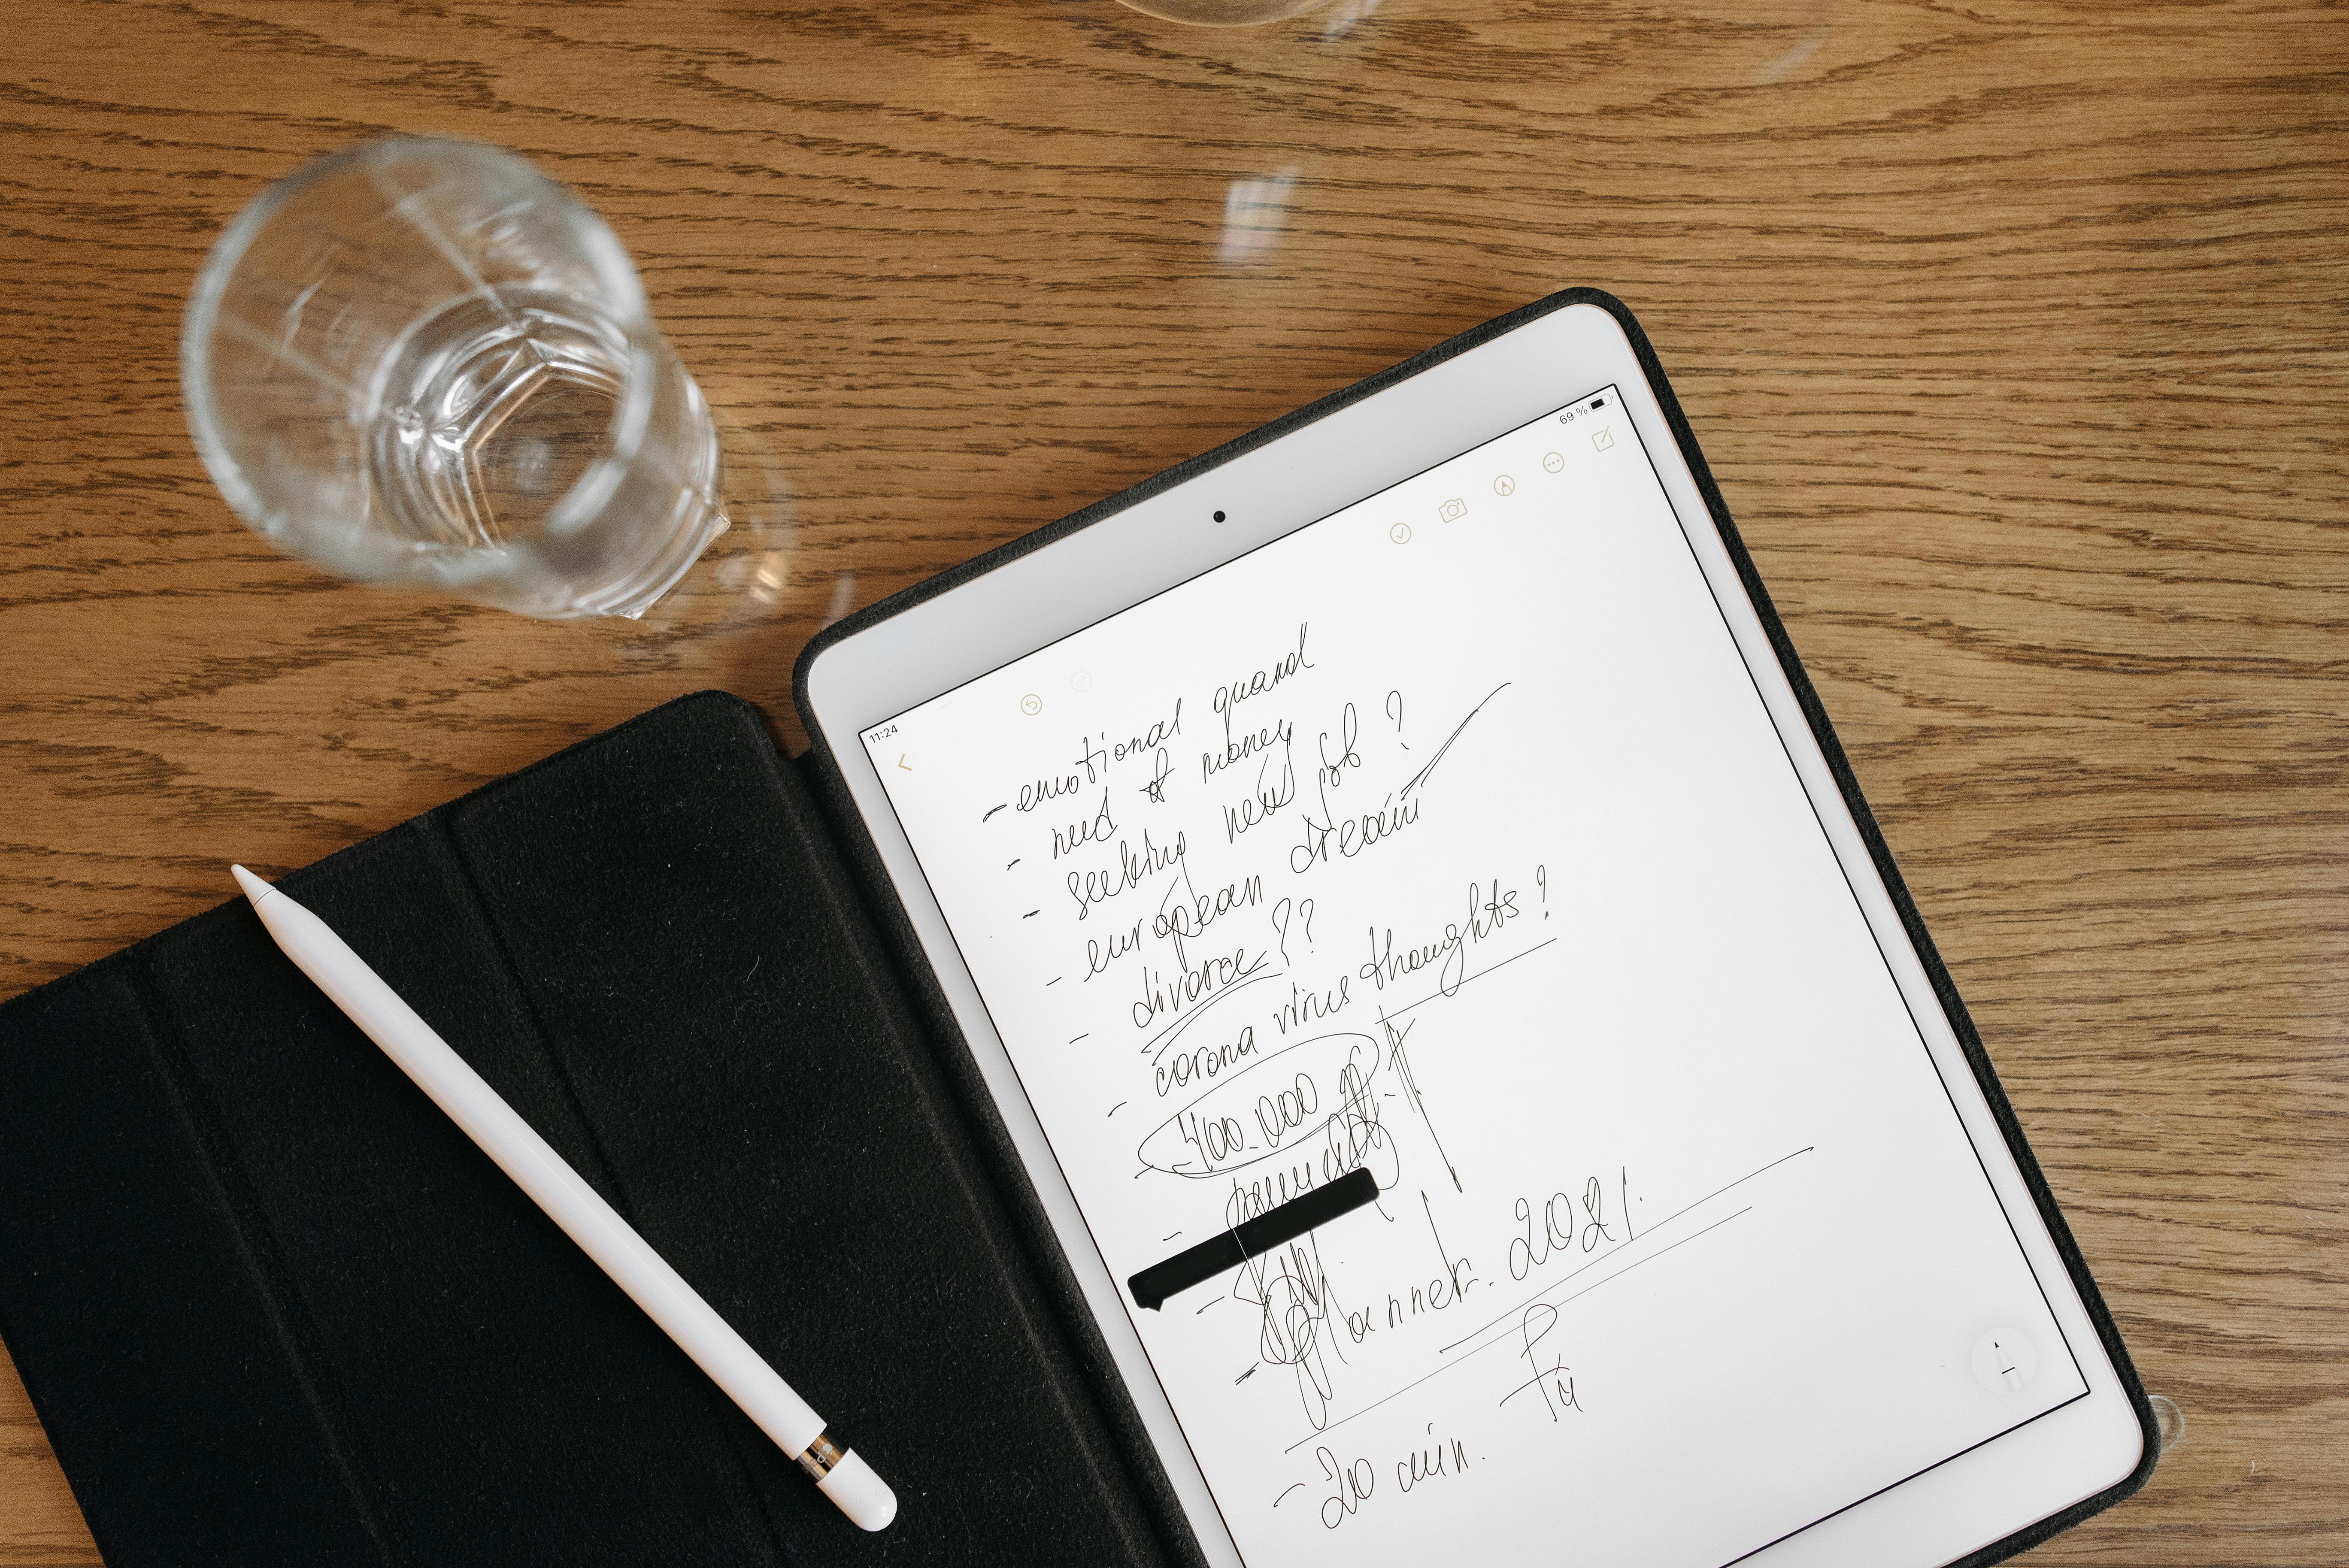 11:24
69 %
- emotional quand
- need of money
- seeking new job ?
- european dream
- divorce ??
- corona virus thoughts ?
- 400.000
-
-
- planner. 2021.
- 20 min.